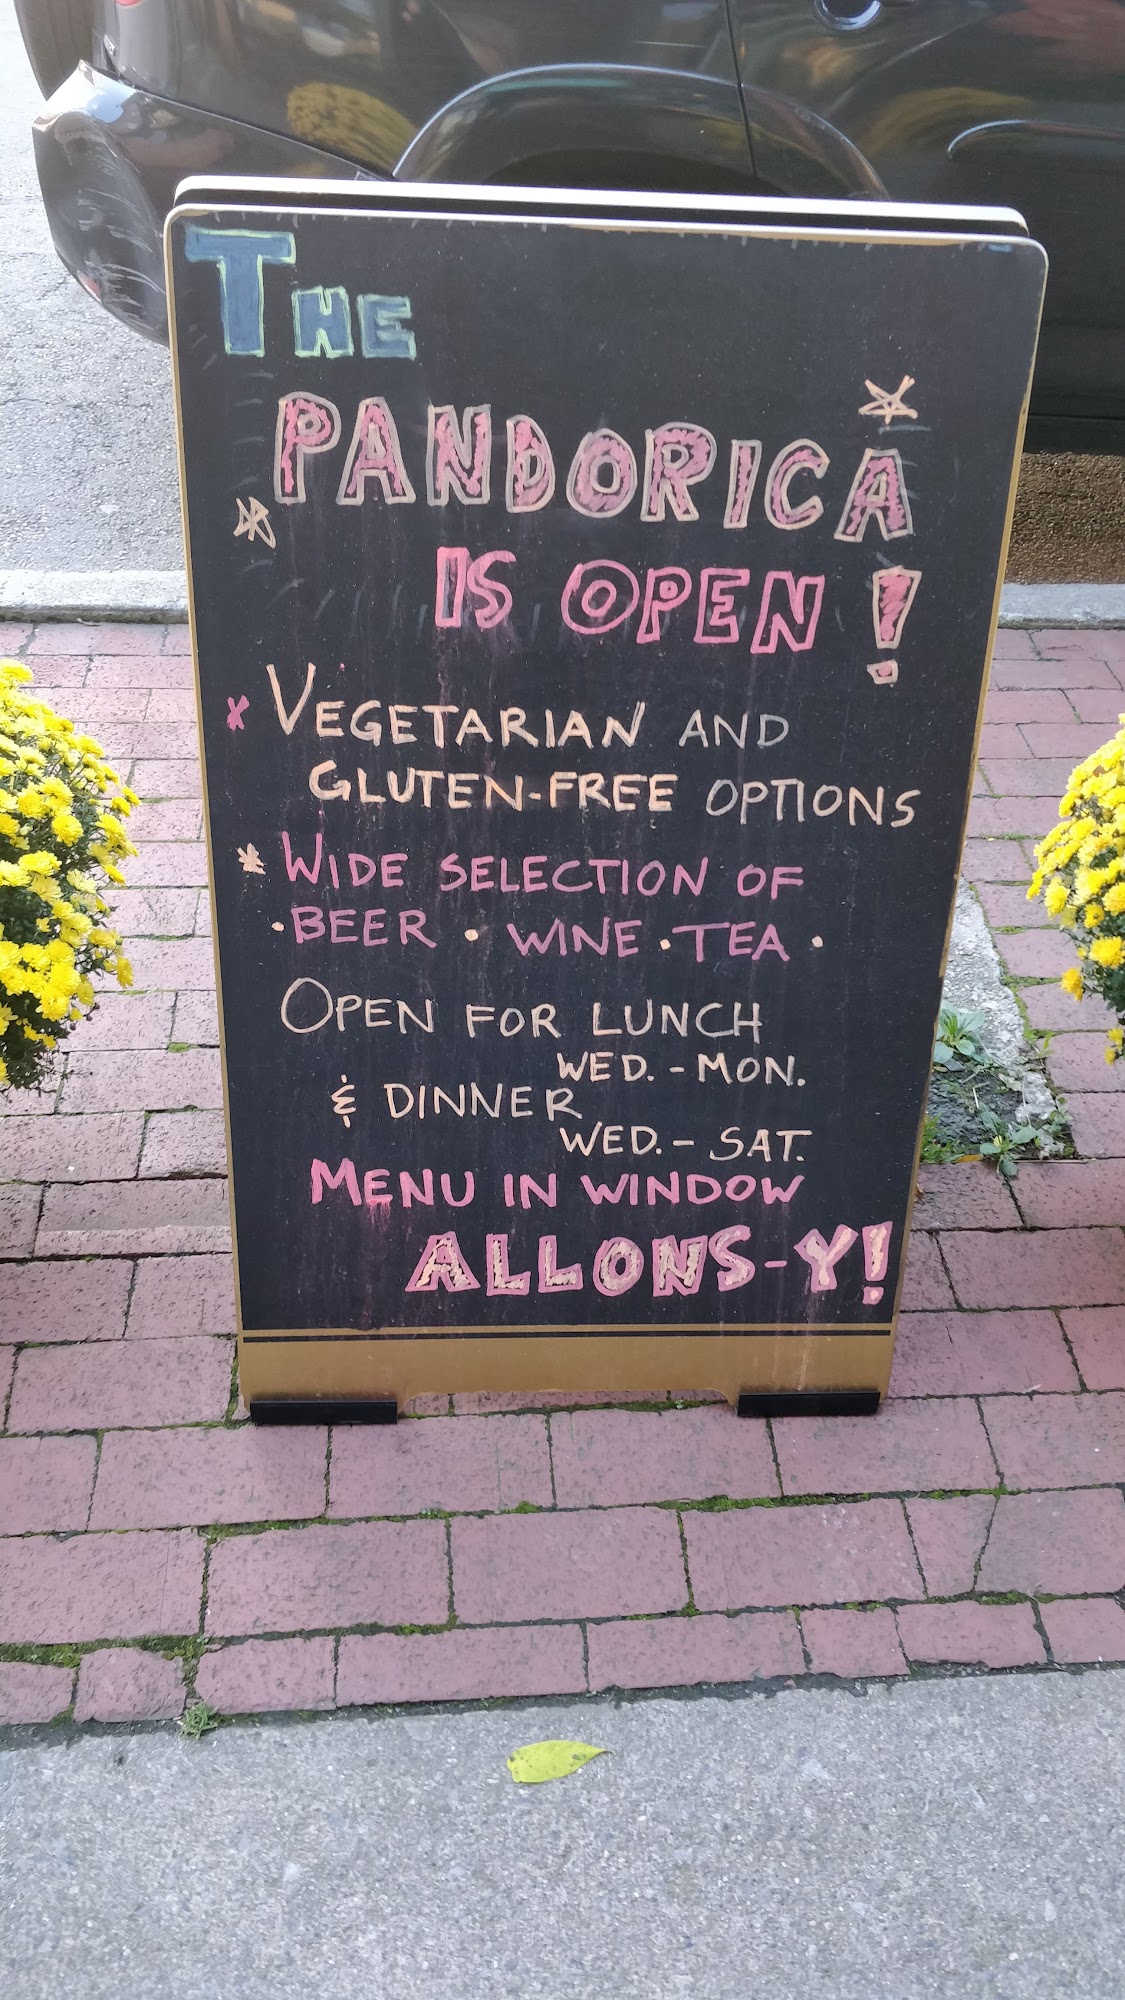 THE
PANDORICA
IS OPEN!
VEGETARIAN AND
GLUTEN-FREE OPTIONS
WIDE SELECTION OF
·BEER · WINE · TEA ·
OPEN FOR LUNCH
WED. - MON.
& DINNER
WED. - SAT.
MENU IN WINDOW
ALLONS-Y!